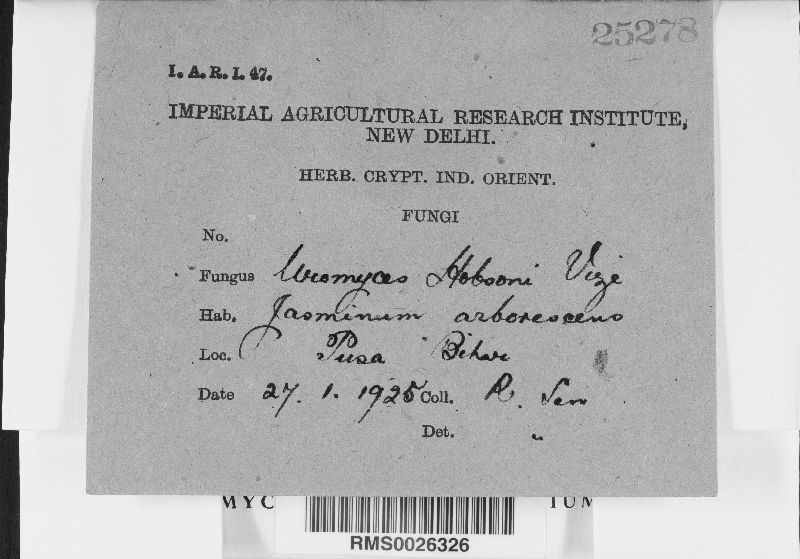 25278
I. A. R. I. 47.
IMPERIAL AGRICULTURAL RESEARCH INSTITUTE,
NEW DELHI.
HERB. CRYPT. IND. ORIENT.
FUNGI
No.
Fungus Uromyces Hobsoni Vize
Hab. Jasminum arborescens
Loc. Pusa Bihar
Date 27. 1. 1925 Coll. R. Sen
Det. "
MYC IUM
RMS0026326